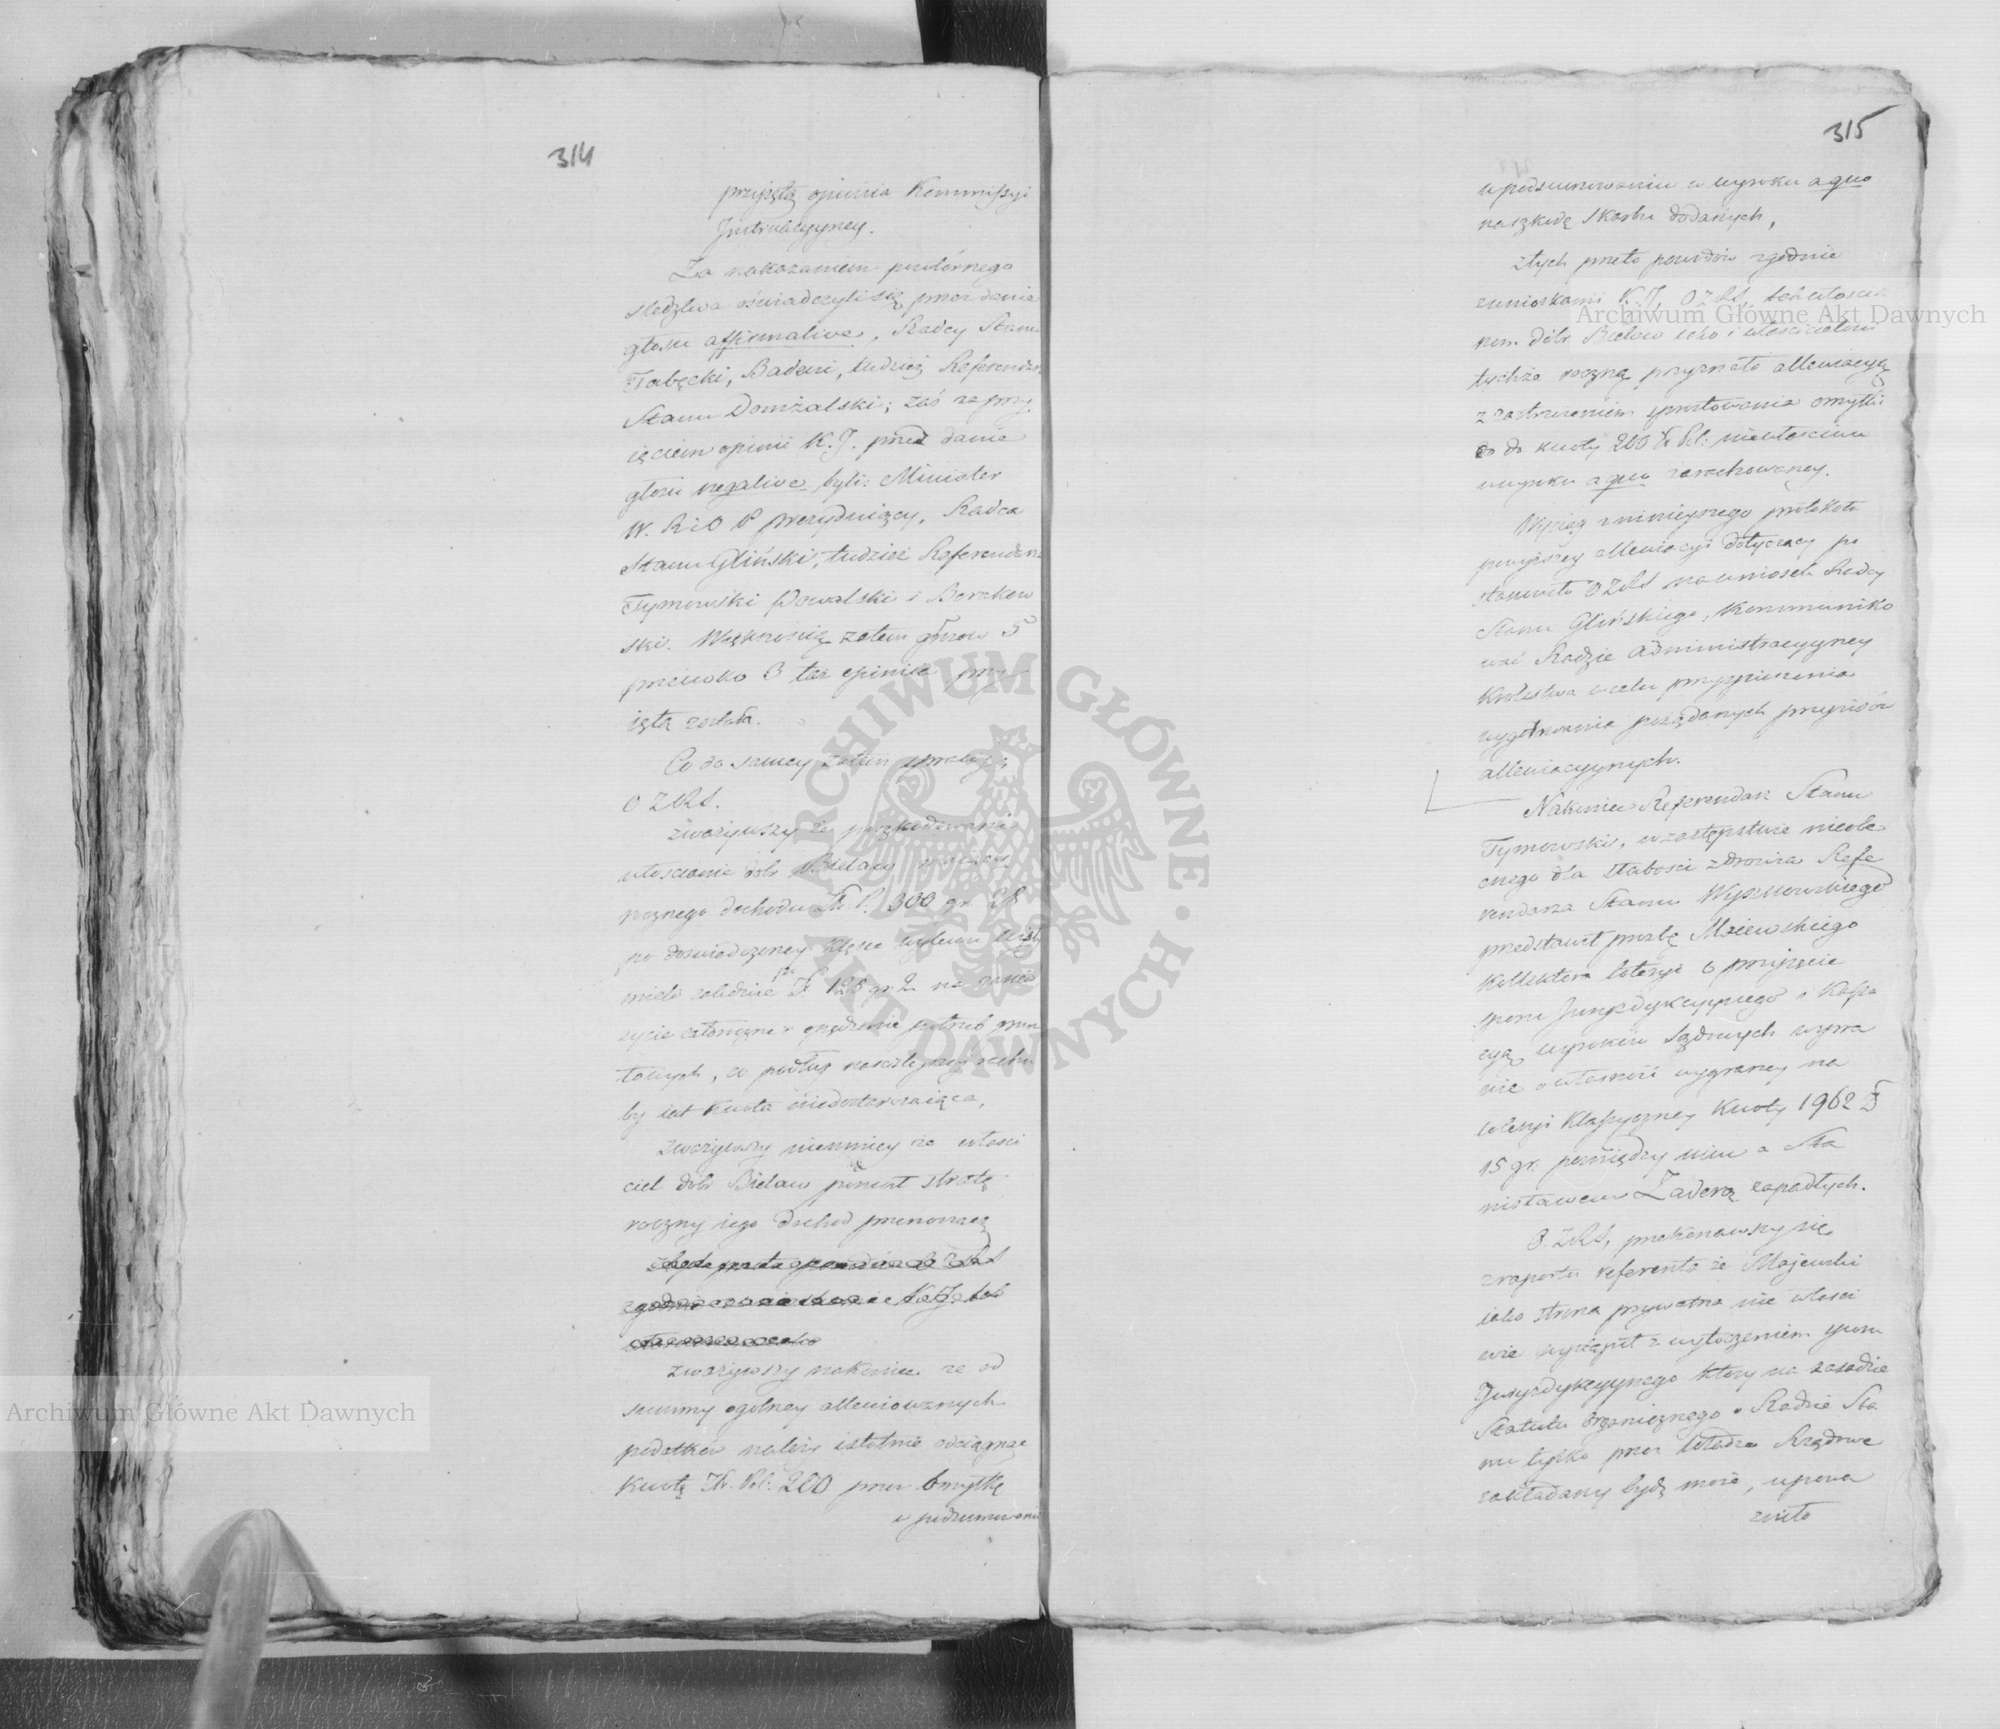 314
przyjętą opinia Kommissyi
Instrukcyjney.
Za nakazaniem powtórnego
śledztwa oświadczyli się przez danie
głosu affirmative, Radcy Stanu
Badeni, tudzież Referendarz
Stanu Domżalski; zaś za przy
ięciem opinii K. J. przez danie
głosu negative byli: Minister
W. R i O P prezydujący, Radca
Stanu Gliński, tudzież Referendarze
Tymowski Kowalski i
ski. Większością zatem głosów 5
przeciwko 3 taż opinia przy
iętą została.
Co do samey zatem
O Z R S.
zważywszy że
włościanie dób Bielawy
rocznego dochodu Zł P. 300 gr. 28
po doświadczoney klęsce wylewu Wisły
mieli zaledwie Zł 126 gr. 2 na
życie całoroczne i opędzenie potrzeb
by iest kwota niedostarczaiąca,
zważywszy niemniey że właści
ciel dóbr Bielaw poniosł stratę
roczny iego dochod przenoszącą
zważywszy nakoniec że od
summy ogólney allewiowanych
podatków należy istotnie odciągnąć
Kwotę Zł. Pol: 200 przez omyłkę
w podsumowaniu
315
w podsumowaniu w wyroku a quo
na szkodę Skarbu dodanych,
z tych przeto powodów zgodnie
z wnioskami K. J. O Z R S.
dóbr Bielaw iako i włościanom
tychże roczną przyznało allewiacyą
z zastrzeżeniem sprostowania omyłki
co do kwoty 200 Zł Pol: niewłaściwie
wyroku a quo zarachowaney.
Wyciąg z ninieyszego protokołu
powyższey allewiacyi dotyczący po
stanowiło O Z R S na wniosek Radcy
Stanu Glińskiego, Kommuniko
wać Radzie Administracyyney
Królestwa w celu przyspieszenia
wygotowania pożądanych przepisów
allewiacyynych.
Nakoniec Referendarz Stanu
Tymowski, w zastępstwie nieobe
cnego dla słabości zdrowia Refe
rendarza Stanu Wyszkowskiego
przedstawił prośbę Maiewskiego
Kollektora loteryi o przyjęcie
sporu Juryzdykcyynego i Kassa
cyą wyroków Sądowych wzglę
nie o własność wygraney na
loteryi Klassyczney Kwoty 1962 Zł
15 gr. pomiędzy nim a Sta
nisławem Zaderą zapadłych.
O. Z R S, przekonawszy się
z raportu referenta że Majewski
iako strona prywatna nie właści
wie wystąpił z wytoczeniem sporu
Juryzdykcyynego który na zasadzie
Statutu Organicznego o Radzie Sta
nu tylko przez Władze Rządowe
zakładany bydź może, upowa
żniło
ARCHIWUM GŁÓWNE AKT DAWNYCH
Archiwum Główne Akt Dawnych
Archiwum Główne Akt Dawnych